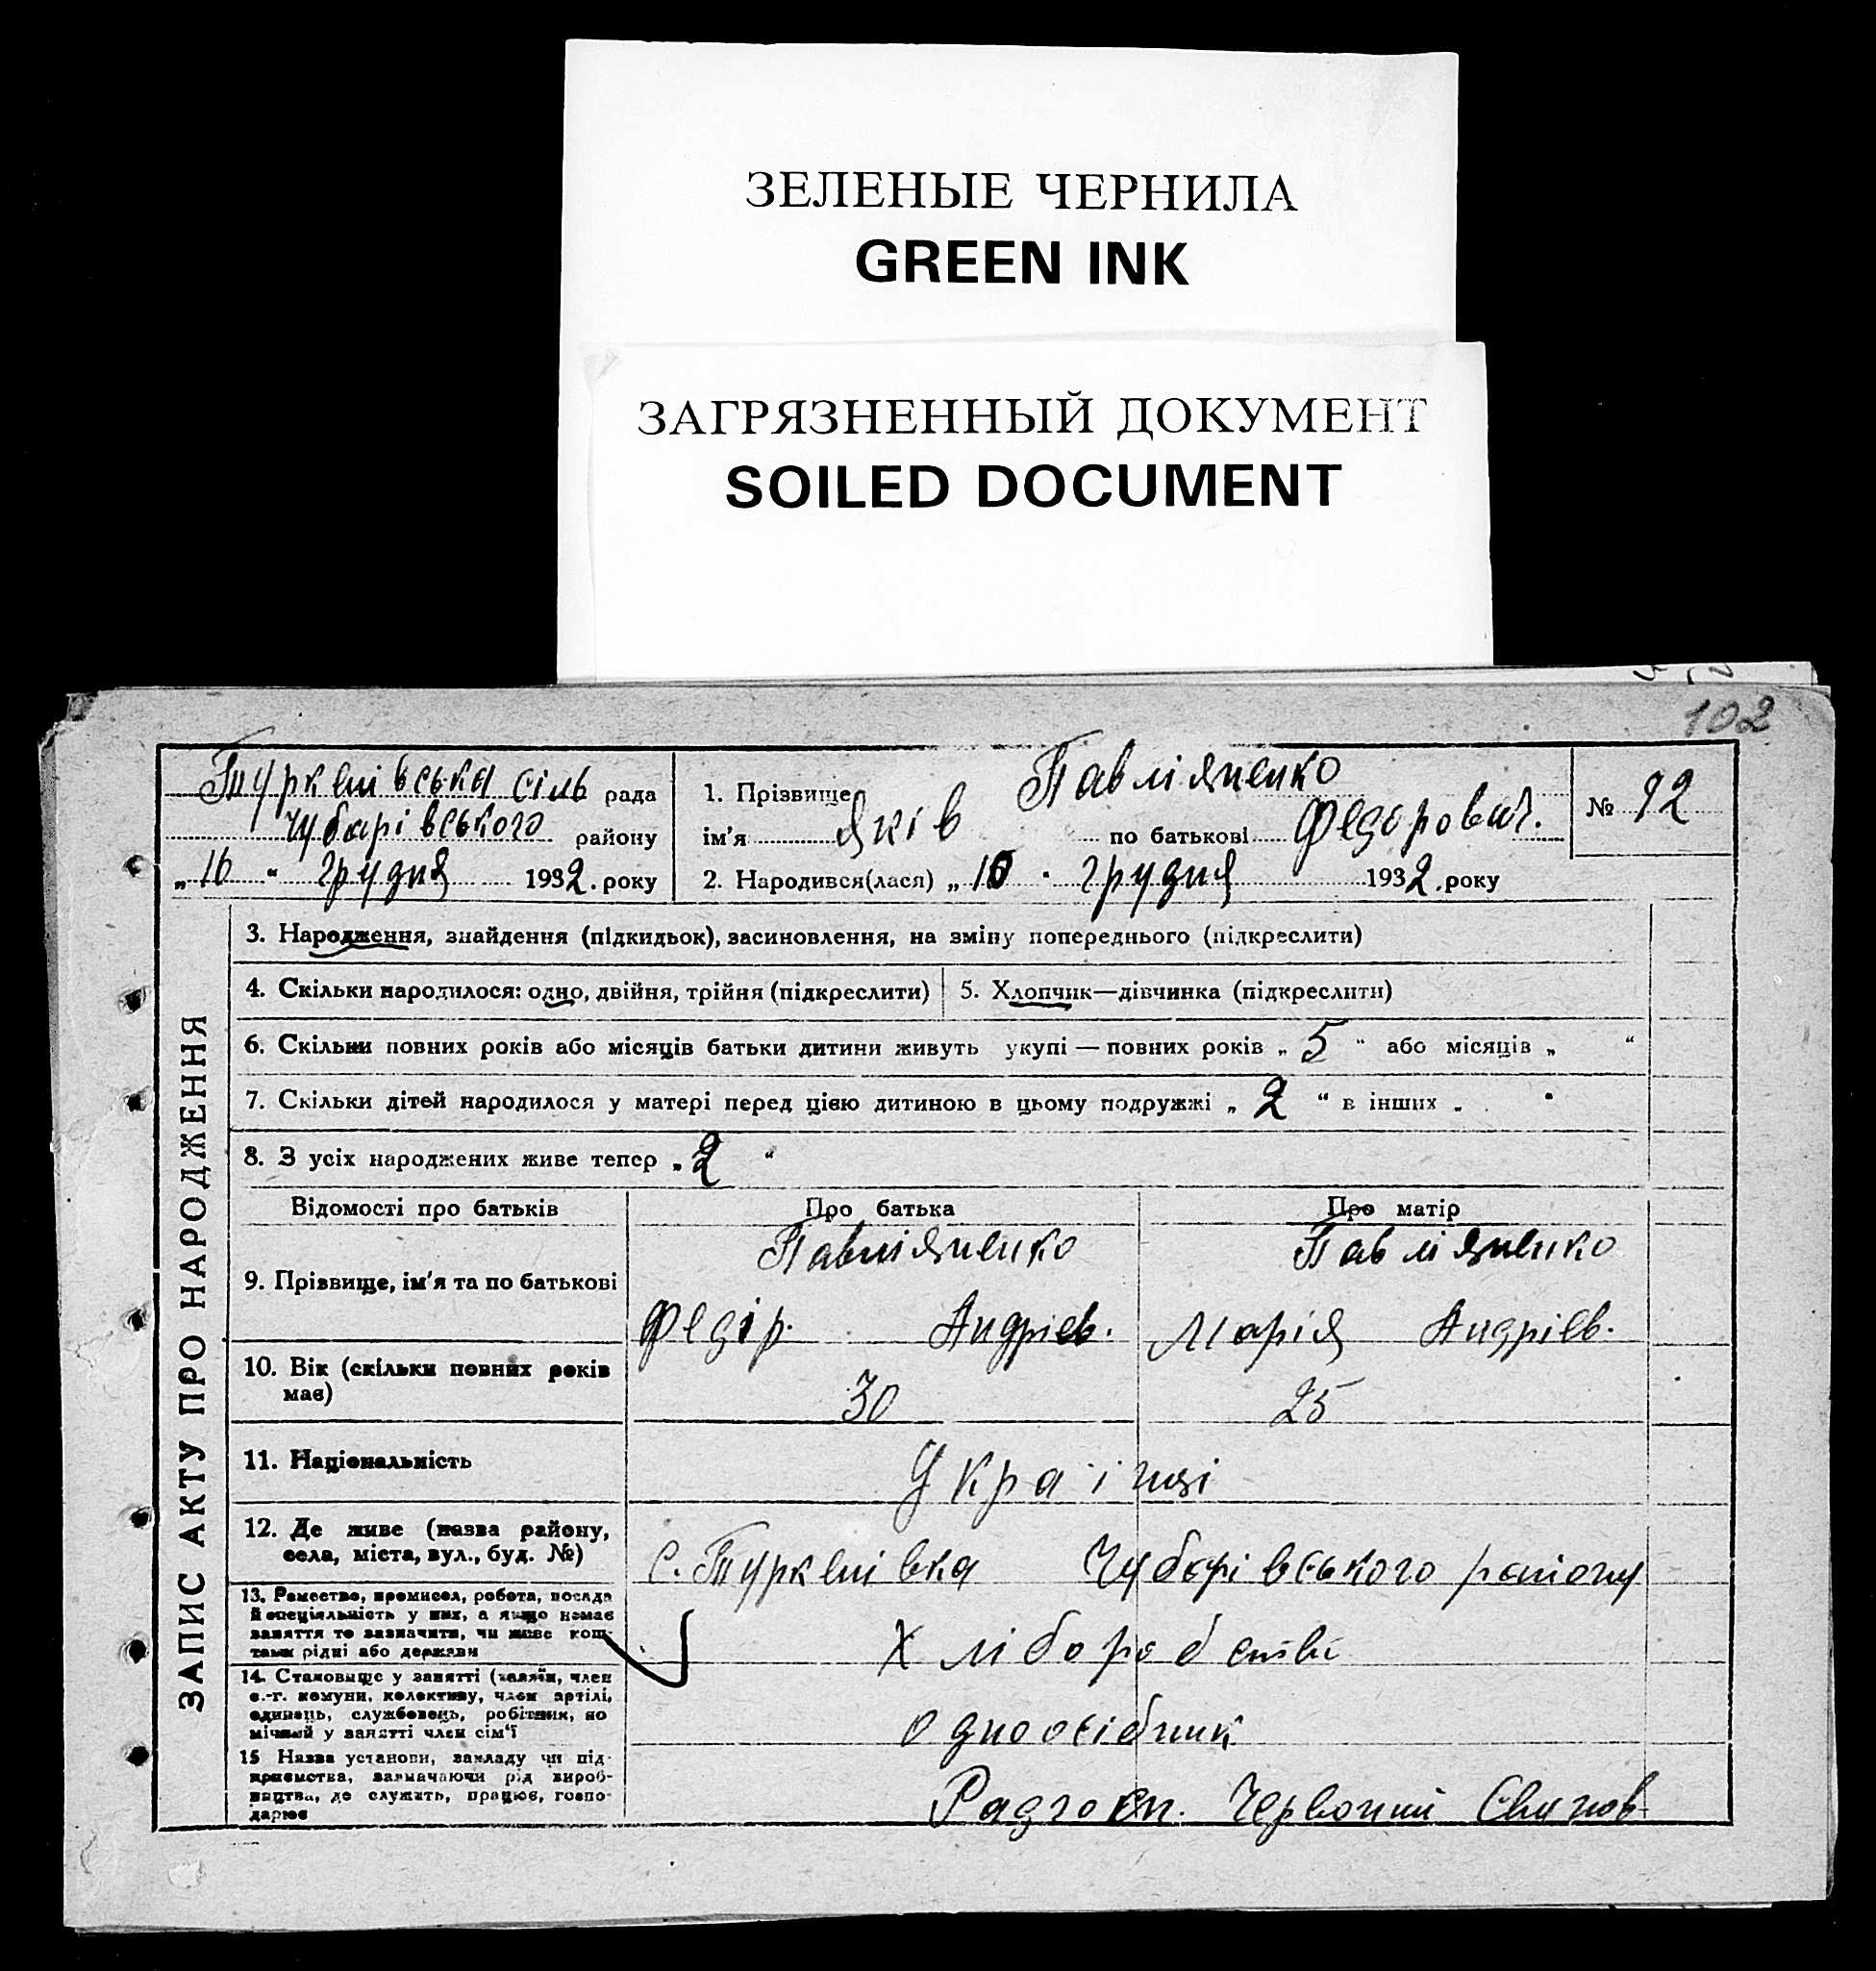 ЗЕЛЕНЫЕ ЧЕРНИЛА
GREEN INK
ЗАГРЯЗНЕННЫЙ ДОКУМЕНТ
SOILED DOCUMENT
102
Туркенівська сіль рада
Чубарівського району
„16“ грудня 1932. року
1. Прізвище Павліяненко
ім'я Яків по батькові Федорович.
2. Народився(лася) „10“ грудня 1932. року
№ 92
ЗАПИС АКТУ ПРО НАРОДЖЕННЯ
3. Народження, знайдення (підкидьок), засиновлення, на зміну попереднього (підкреслити)
4. Скільки народилося: одно, двійня, трійня (підкреслити)
5. Хлопчик—дівчинка (підкреслити)
6. Скільки повних років або місяців батьки дитини живуть укупі — повних років „ 5 “ або місяців „ “
7. Скільки дітей народилося у матері перед цією дитиною в цьому подружжі „ 2 “ в інших „ “
8. З усіх народжених живе тепер „ 2 “
Відомості про батьків
Про батька
Про матір
9. Прізвище, ім'я та по батькові
Павліяненко
Федір. Андріев.
Павліяненко
Марія Андріев.
10. Вік (скільки повних років
має)
30
25
11. Національність
Українці
12. Де живе (назва району,
села, міста, вул., буд. №)
с. Туркенівка Чубарівського району
13. Ремество, промисел, робота, посада
й спеціяльність у них, а якщо немає
заняття то зазначити, чи живе кош-
тами рідні або держави
Хліборобство
14. Становище у занятті (хазяїн, член
с.-г. комуни, колективу, член артілі,
одинець, службовець, робітник, по
мічний у занятті член сім'ї
одноосібник
15 Назва установи, закладу чи під-
приємства, зазначаючи рід вироб-
ництва, де служить, працює, госпо-
дарює
Радгосп. Червоний